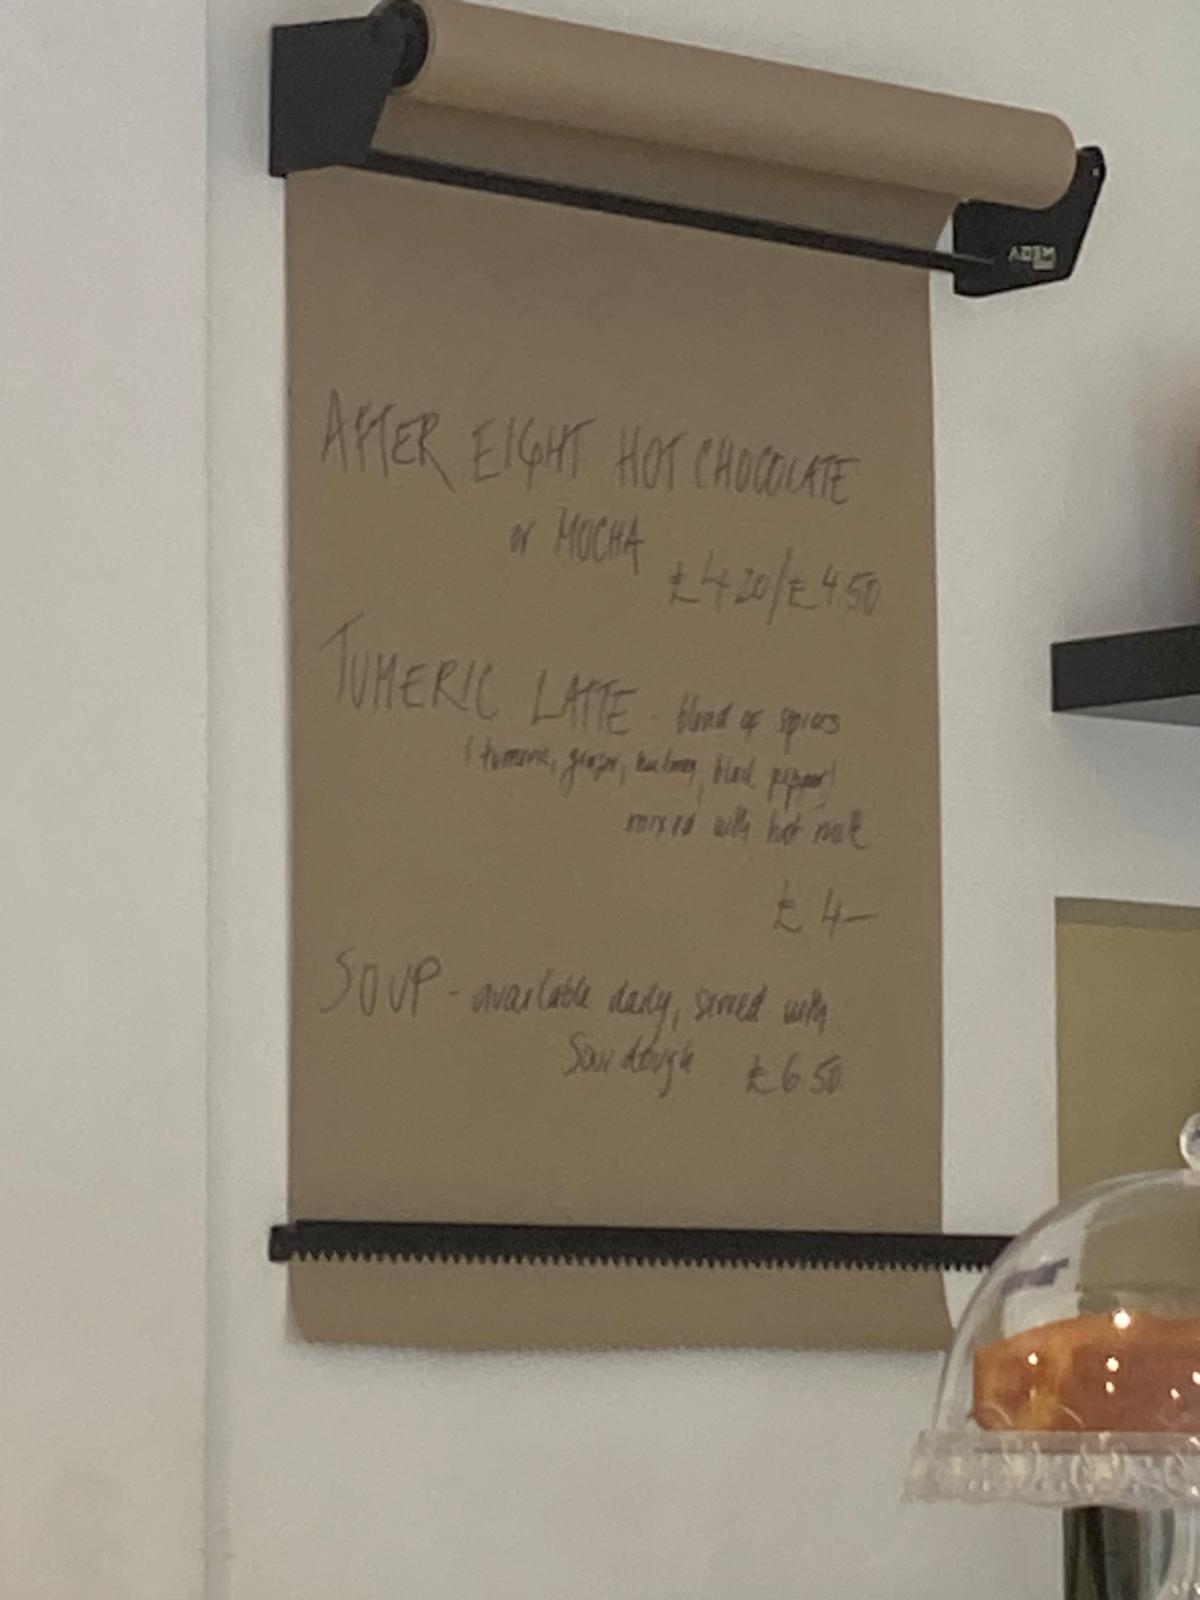 AFTER EIGHT HOT CHOCOLATE
or MOCHA
£4.20/£4.50
TUMERIC LATTE - blend of spices
(tumeric, ginger, nutmeg, black pepper)
mixed with hot milk
£4—
SOUP - available daily, served with
Sourdough £6.50